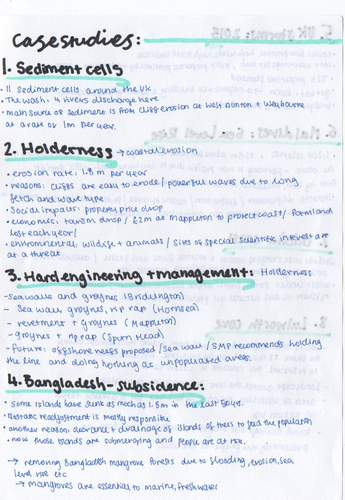 Casestudies:
1. Sediment cells
• 11 sediment cells around the UK
• The wash. 4 rivers discharge here
• main source of sediment is from cliff erosion at West Runton + Weybourne
at a rate of 1m per year.
2. Holderness → coastal erosion
• erosion rate: 1.8 m per year
• reasons: cliffs are easy to erode/ powerful waves due to long
fetch and wave type
• Social impacts: property price drop
• economic: tourism drop / £2m at mappleton to protect coast/ farmland
lost each year/
• environmental: wildlife + animals / sites of special scientific interest are
at a threat
3. Hard engineering + management: Holderness
- Sea walls and groynes (Bridlington)
- Sea wall groynes, rip rap (Hornsea)
- revetment + groynes (Mappleton)
- groynes + rip rap (Spurn Head)
- future: offshore reefs proposed / sea wall / SMP recommends holding
the line and doing nothing at unpopulated areas.
4. Bangladesh - subsidence:
• Some islands have sunk as much as 1.5m in the last 50yrs.
• isostatic readjustment is mostly responsible
• another reason: clearance + drainage of islands of trees to feed the population
• now those islands are submerging and people are at risk.
→ removing Bangladesh mangrove forests due to flooding, erosion, sea
level rise etc
→ mangroves are essential to marine, freshwater